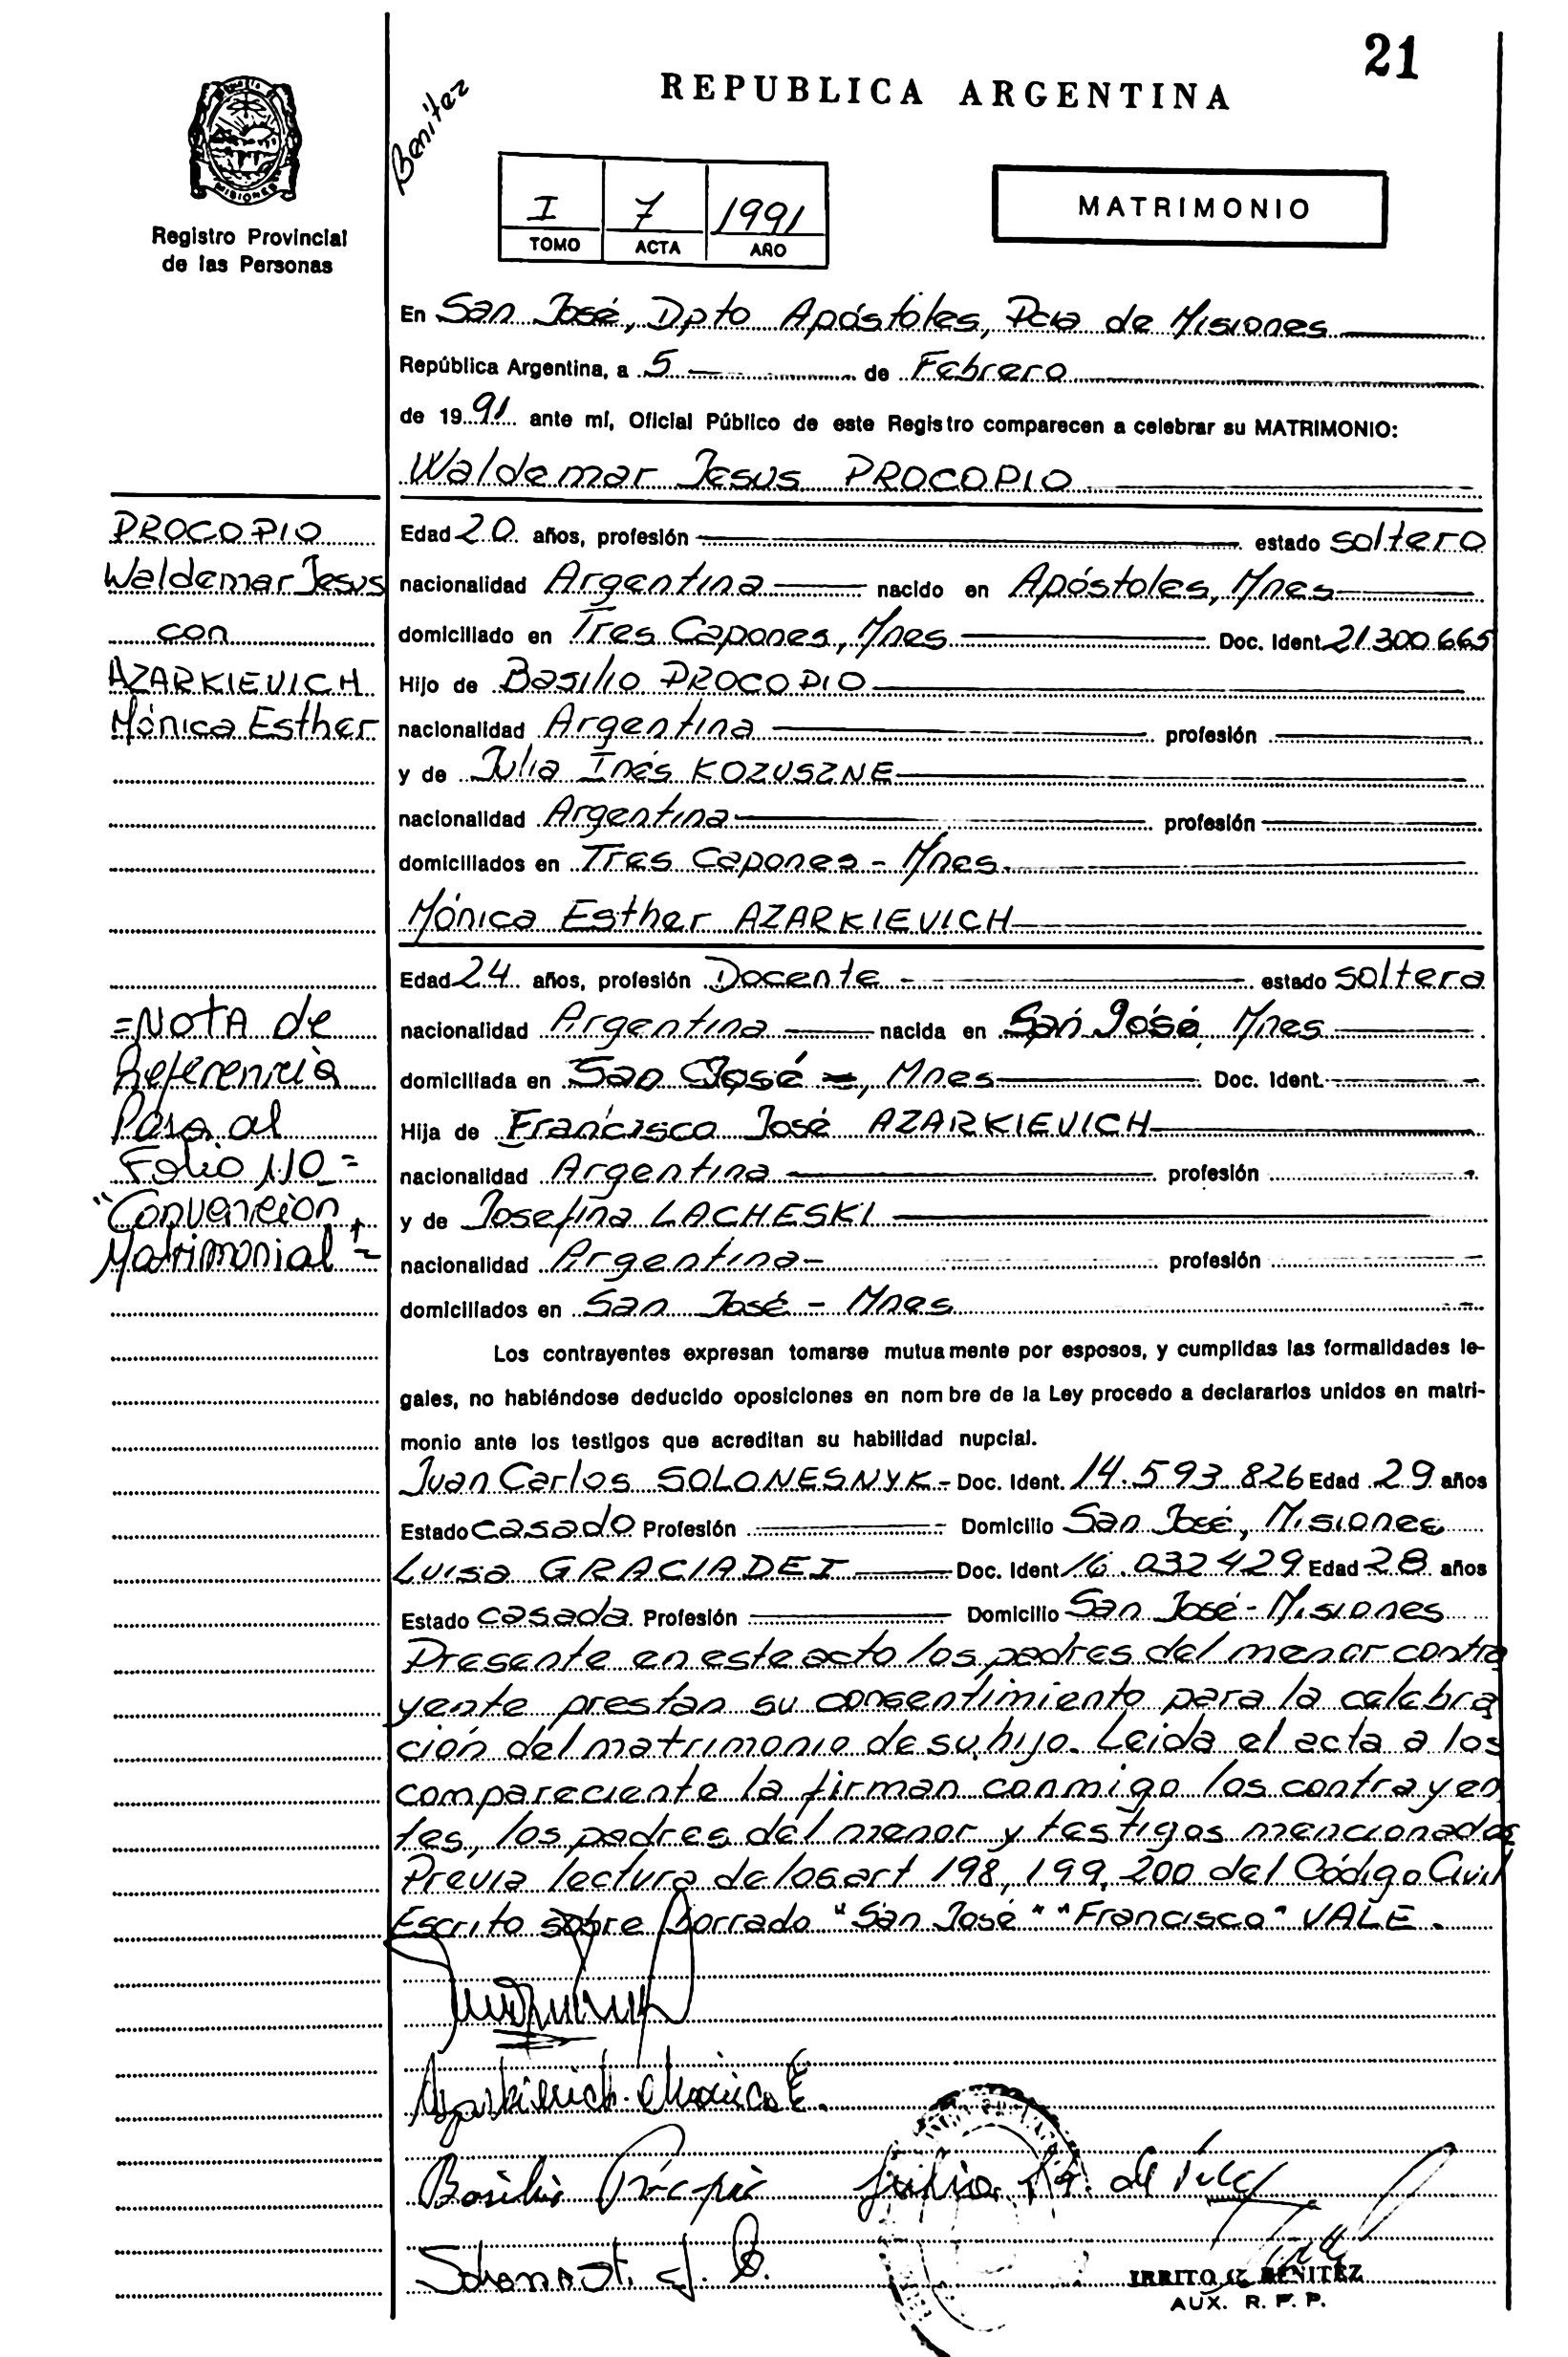 21
REPUBLICA ARGENTINA
Benitez
MISIONES
Registro Provincial
de las Personas
I 7 1991
TOMO ACTA AÑO
MATRIMONIO
En San José, Dpto Apóstoles, Pcia de Misiones
República Argentina, a 5 de Febrero
de 1991 ante mí, Oficial Público de este Registro comparecen a celebrar su MATRIMONIO:
Waldemar Jesus PROCOPIO
PROCOPIO
Waldemar Jesus
con
AZARKIEVICH
Mónica Esther
Edad 20 años, profesión estado soltero
nacionalidad Argentina nacido en Apóstoles, Mnes
domiciliado en Tres Capones, Mnes Doc. Ident. 21.300.665
Hijo de Basilio PROCOPIO
nacionalidad Argentina profesión
y de Julia Inés KOZUSZNE
nacionalidad Argentina profesión
domiciliados en Tres Capones - Mnes
Mónica Esther AZARKIEVICH
=NOTA de
Referencia
Pasa al
Folio 110=
"Convencion
Matrimonial"=
Edad 24 años, profesión Docente estado soltera
nacionalidad Argentina nacida en San José, Mnes
domiciliada en San José, Mnes Doc. Ident.
Hija de Francisco José AZARKIEVICH
nacionalidad Argentina profesión
y de Josefina LACHESKI
nacionalidad Argentina profesión
domiciliados en San José - Mnes
Los contrayentes expresan tomarse mutuamente por esposos, y cumplidas las formalidades le-
gales, no habiéndose deducido oposiciones en nombre de la Ley procedo a declararlos unidos en matri-
monio ante los testigos que acreditan su habilidad nupcial.
Juan Carlos SOLONESNYK - Doc. Ident. 14.593.826 Edad 29 años
Estado casado Profesión Domicilio San José, Misiones
Luisa GRACIADEI Doc. Ident 16.032.429 Edad 28 años
Estado casada Profesión Domicilio San José - Misiones
Presente en este acto los padres del menor contra
yente prestan su consentimiento para la celebra
ción del matrimonio de su hijo. Leida el acta a los
compareciente la firman conmigo los contrayen
tes, los padres del menor y testigos mencionados
Previa lectura de los art 198, 199, 200 del Código Civil
Escrito sobre borrado "San José" "Francisco" VALE.
Azarkievich Mónica E.
Basilio
Julia
BENITEZ
AUX. R. P. P.